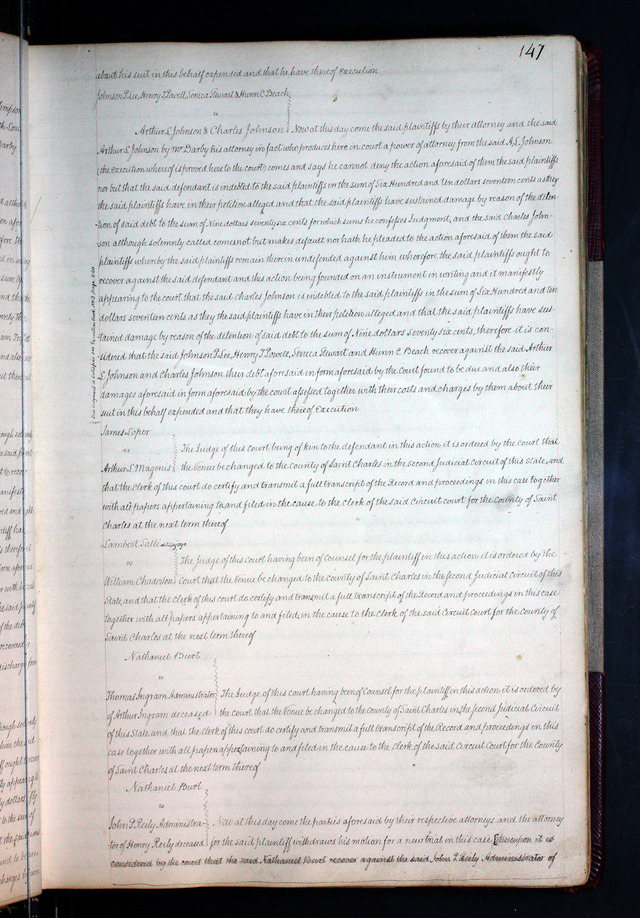 147
about his suit in this behalf expended and that he have thereof Execution
Johnson P. Lee, Henry T Powell, Seneca Stewart & Hunn C. Beach
vs
Arthur L Johnson & Charles Johnson Now at this day come the said plaintiffs by their attorney and the said
Arthur L Johnson by Mr Darby his attorney in fact who produces here in court a power of attorney from the said A L Johnson
(the execution whereof is proved here to the court) comes and says he cannot deny the action aforesaid of them the said plaintiffs
nor but that the said defendant is indebted to the said plaintiffs in the sum of Six Hundred and ten dollars seventeen cents as they
the said plaintiffs have in their petition alleged and that the said plaintiffs have sustained damage by reason of the deten-
tion of said debt to the sum of Nine dollars seventy six cents for which sums he confesses Judgment, and the said Charles John-
son although solemnly called comes not but makes default nor hath he pleaded to the action aforesaid of them the said
plaintiffs whereby the said plaintiffs remain therein undefended against him wherefore the said plaintiffs ought to
recover against the said defendant and this action being founded on an instrument in writing and it manifestly
appearing to the court that the said Charles Johnson is indebted to the said plaintiffs in the sum of Six Hundred and ten
dollars seventeen cents as they the said plaintiffs have in their petition alleged and that the said plaintiffs have sus-
tained damage by reason of the detention of said debt to the sum of Nine dollars seventy six cents, therefore it is con-
sidered that the said Johnson P. Lee, Henry T Powell, Seneca Stewart and Hunn C Beach recover against the said Arthur
L Johnson and Charles Johnson their debt aforesaid in form aforesaid by the Court found to be due and also their
damages aforesaid in form aforesaid by the court assessed together with their costs and charges by them about their
suit in this behalf expended and that they have thereof Execution
James Loper
vs
The Judge of this court being of kin to the defendant in this action it is ordered by the court that
Arthur L Magenis the Venue be changed to the county of Saint Charles in the Second Judicial Circuit of this State, and
that the clerk of this court do certify and transmit a full transcript of the Record and proceedings in this case together
with all papers appertaining to and filed in the cause to the clerk of the said circuit court for the County of Saint
Charles at the next term thereof
Lambert Salle
vs
The Judge of this court having been of Counsel for the plaintiff in this action it is ordered by the
William Chadexion Court that the Venue be changed to the county of Saint Charles in the second Judicial Circuit of this
State, and that the Clerk of this court do certify and transmit a full transcript of the Record and proceedings in this case
together with all papers appertaining to and filed in the cause to the clerk of the said Circuit Court for the county of
Saint Charles at the next term thereof
Nathaniel Burt
vs
Thomas Ingram Administrator The Judge of this court having been of Counsel for the plaintiff in this action it is ordered by
of Arthur Ingram deceased the court that the Venue be changed to the County of Saint Charles in the second Judicial Circuit
of this State and that the Clerk of this court do certify and transmit a full transcript of the Record and proceedings in this
case together with all papers appertaining to and filed in the cause to the clerk of the said Circuit Court for the County
of Saint Charles at the next term thereof
Nathaniel Burt
vs
John P. Reily Administra- Now at this day come the parties aforesaid by their respective attorneys and the attorney
tor of Henry Reily deceased for the said plaintiff withdraws his motion for a new trial in this case thereupon it is
considered by the court that the said Nathaniel Burt recover against the said John P. Reily Administrator of